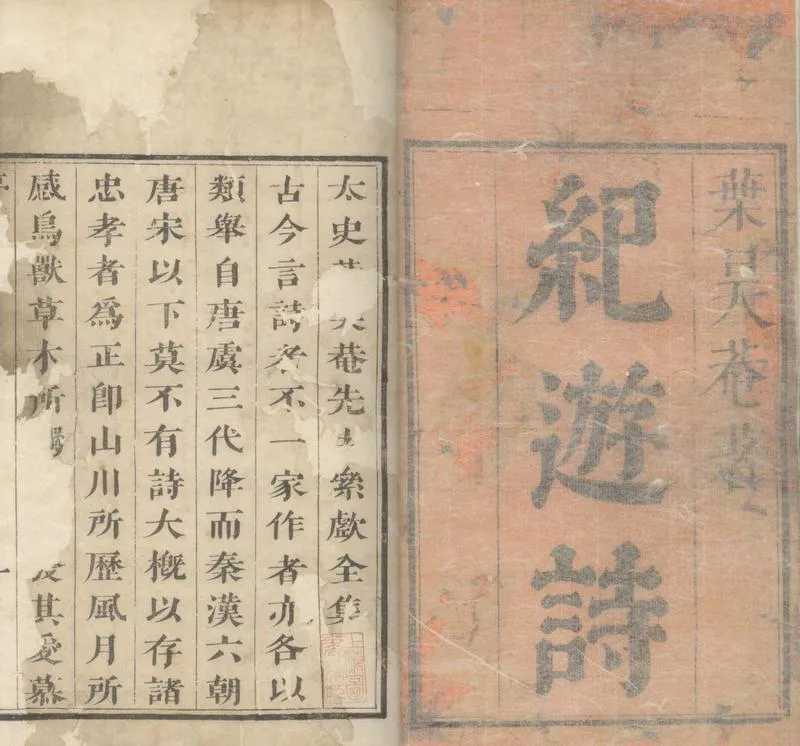 葉昊菴著
紀遊詩
太史菴先全集
古今言詩者不一家作者亦各以
類舉自唐虞三代降而秦漢六朝
唐宋以下莫不有詩大槪以存諸
忠孝者爲正卽山川所歷風月所
感鳥獸草木所其愛慕